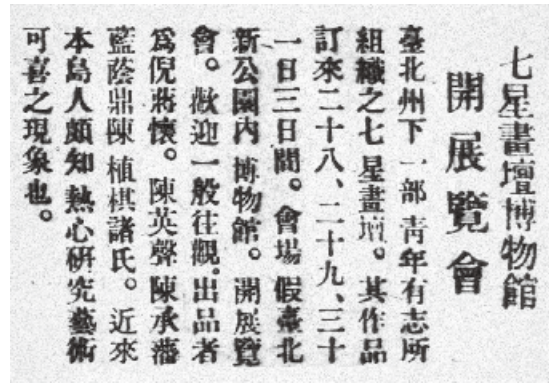 七星畫壇博物館
開展覽會
臺北州下一部青年有志所
組織之七星畫壇。其作品
訂來二十八、二十九、三十
一日三日間。會場假臺北
新公園內博物館。開展覽
會。歡迎一般往觀。出品者
爲倪蔣懷。陳英聲陳承藩
藍蔭鼎陳植棋諸氏。近來
本島人頗知熱心硏究藝術
可喜之現象也。